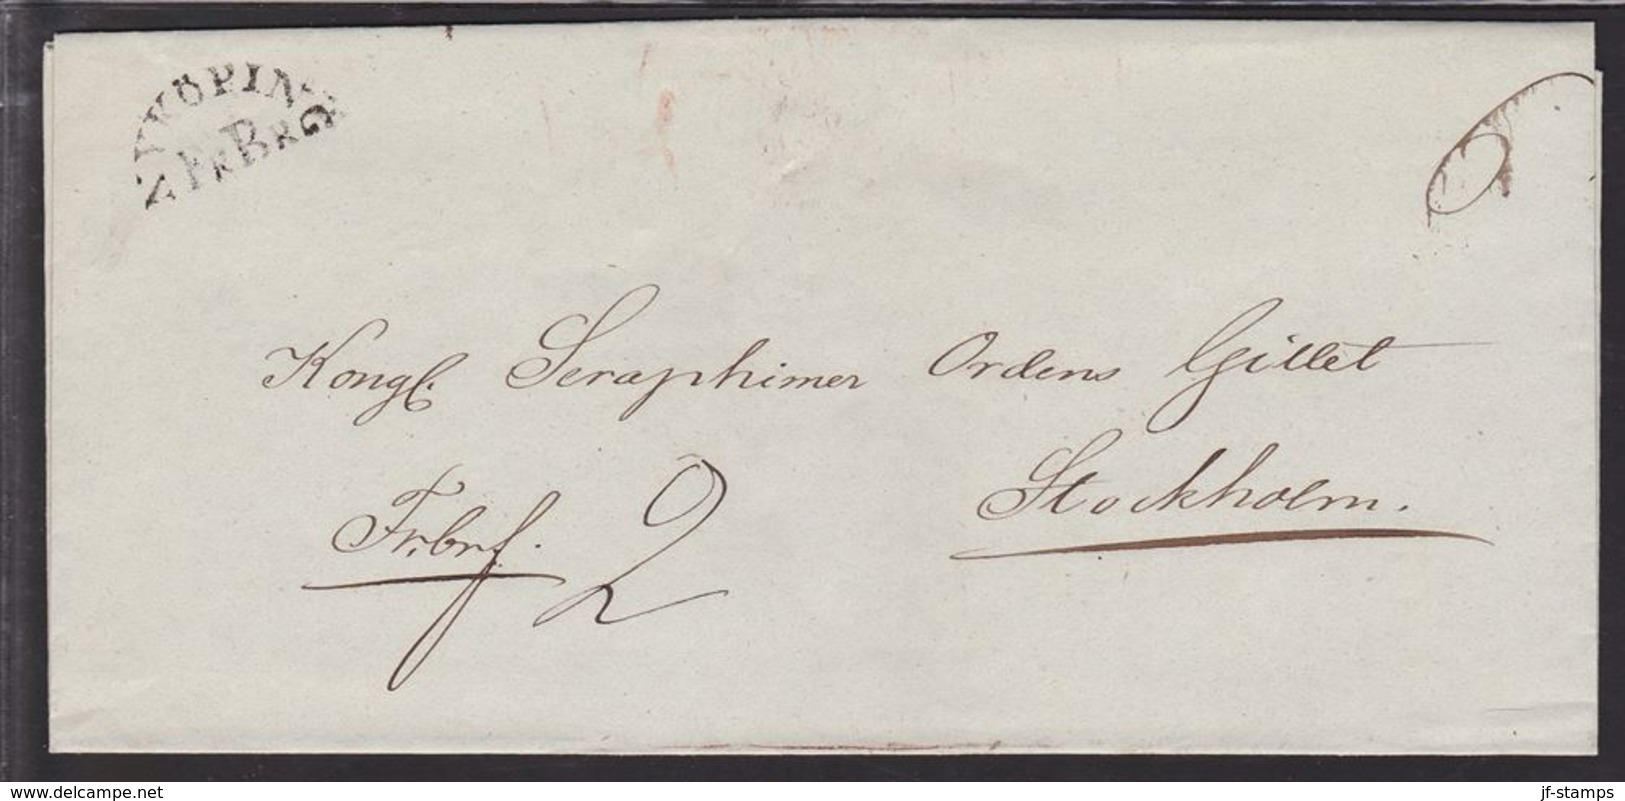 NYKÖPING
FRBREF
Kongl. Seraphimer Ordens Gillet
Stockholm.
Frbrf. 2
www.delcampe.net
jf-stamps